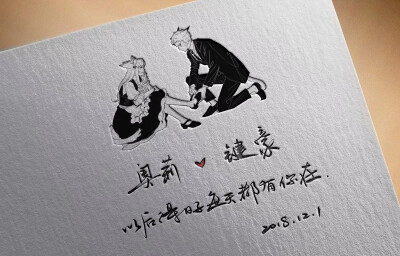 奥莉 ♥ 键豪
以后得好每天都有你在.
2018.12.1